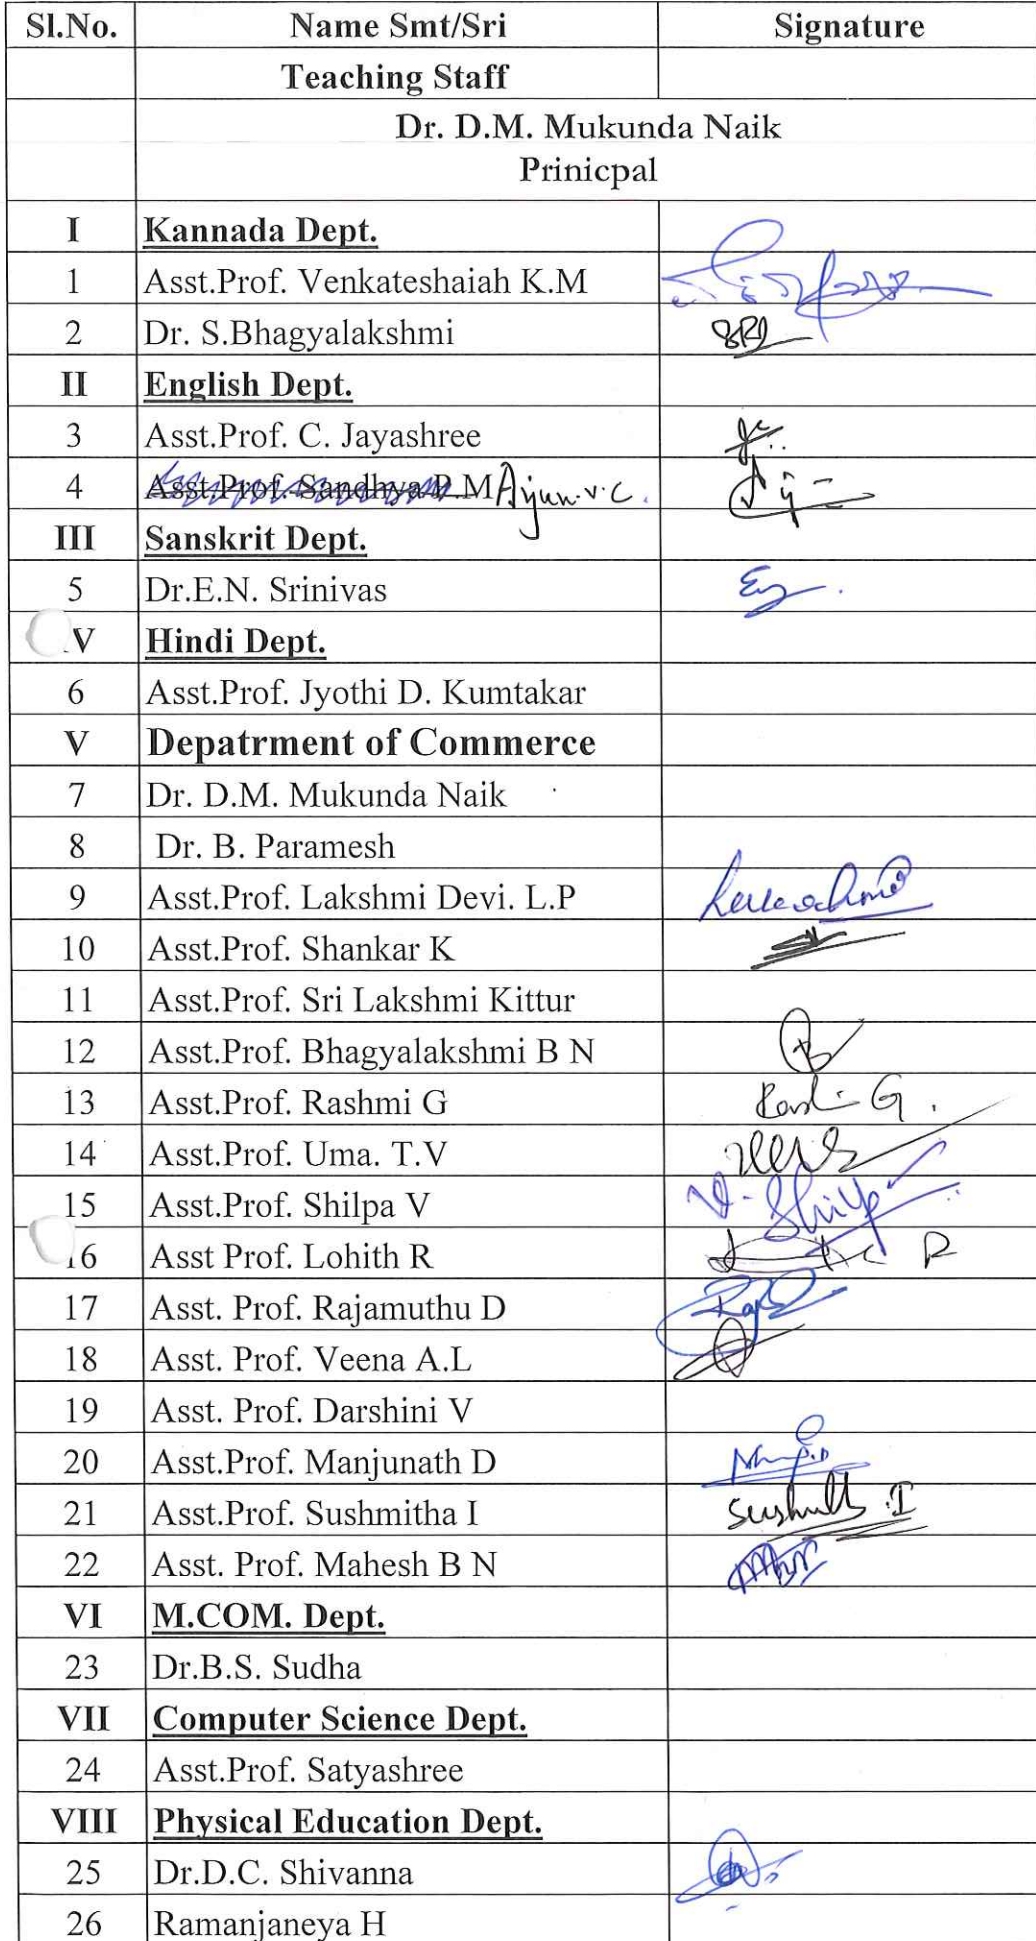 Sl.No. Name Smt/Sri Signature
Teaching Staff
Dr. D.M. Mukunda Naik
Prinicpal
I Kannada Dept.
1 Asst.Prof. Venkateshaiah K.M
2 Dr. S.Bhagyalakshmi
II English Dept.
3 Asst.Prof. C. Jayashree
4 Asst.Prof. Sandhya P.M Arjun.v.c.
III Sanskrit Dept.
5 Dr.E.N. Srinivas
V Hindi Dept.
6 Asst.Prof. Jyothi D. Kumtakar
V Depatrment of Commerce
7 Dr. D.M. Mukunda Naik
8 Dr. B. Paramesh
9 Asst.Prof. Lakshmi Devi. L.P
10 Asst.Prof. Shankar K
11 Asst.Prof. Sri Lakshmi Kittur
12 Asst.Prof. Bhagyalakshmi B N
13 Asst.Prof. Rashmi G
14 Asst.Prof. Uma. T.V
15 Asst.Prof. Shilpa V
16 Asst Prof. Lohith R
17 Asst. Prof. Rajamuthu D
18 Asst. Prof. Veena A.L
19 Asst. Prof. Darshini V
20 Asst.Prof. Manjunath D
21 Asst.Prof. Sushmitha I
22 Asst. Prof. Mahesh B N
VI M.COM. Dept.
23 Dr.B.S. Sudha
VII Computer Science Dept.
24 Asst.Prof. Satyashree
VIII Physical Education Dept.
25 Dr.D.C. Shivanna
26 Ramanjaneya H